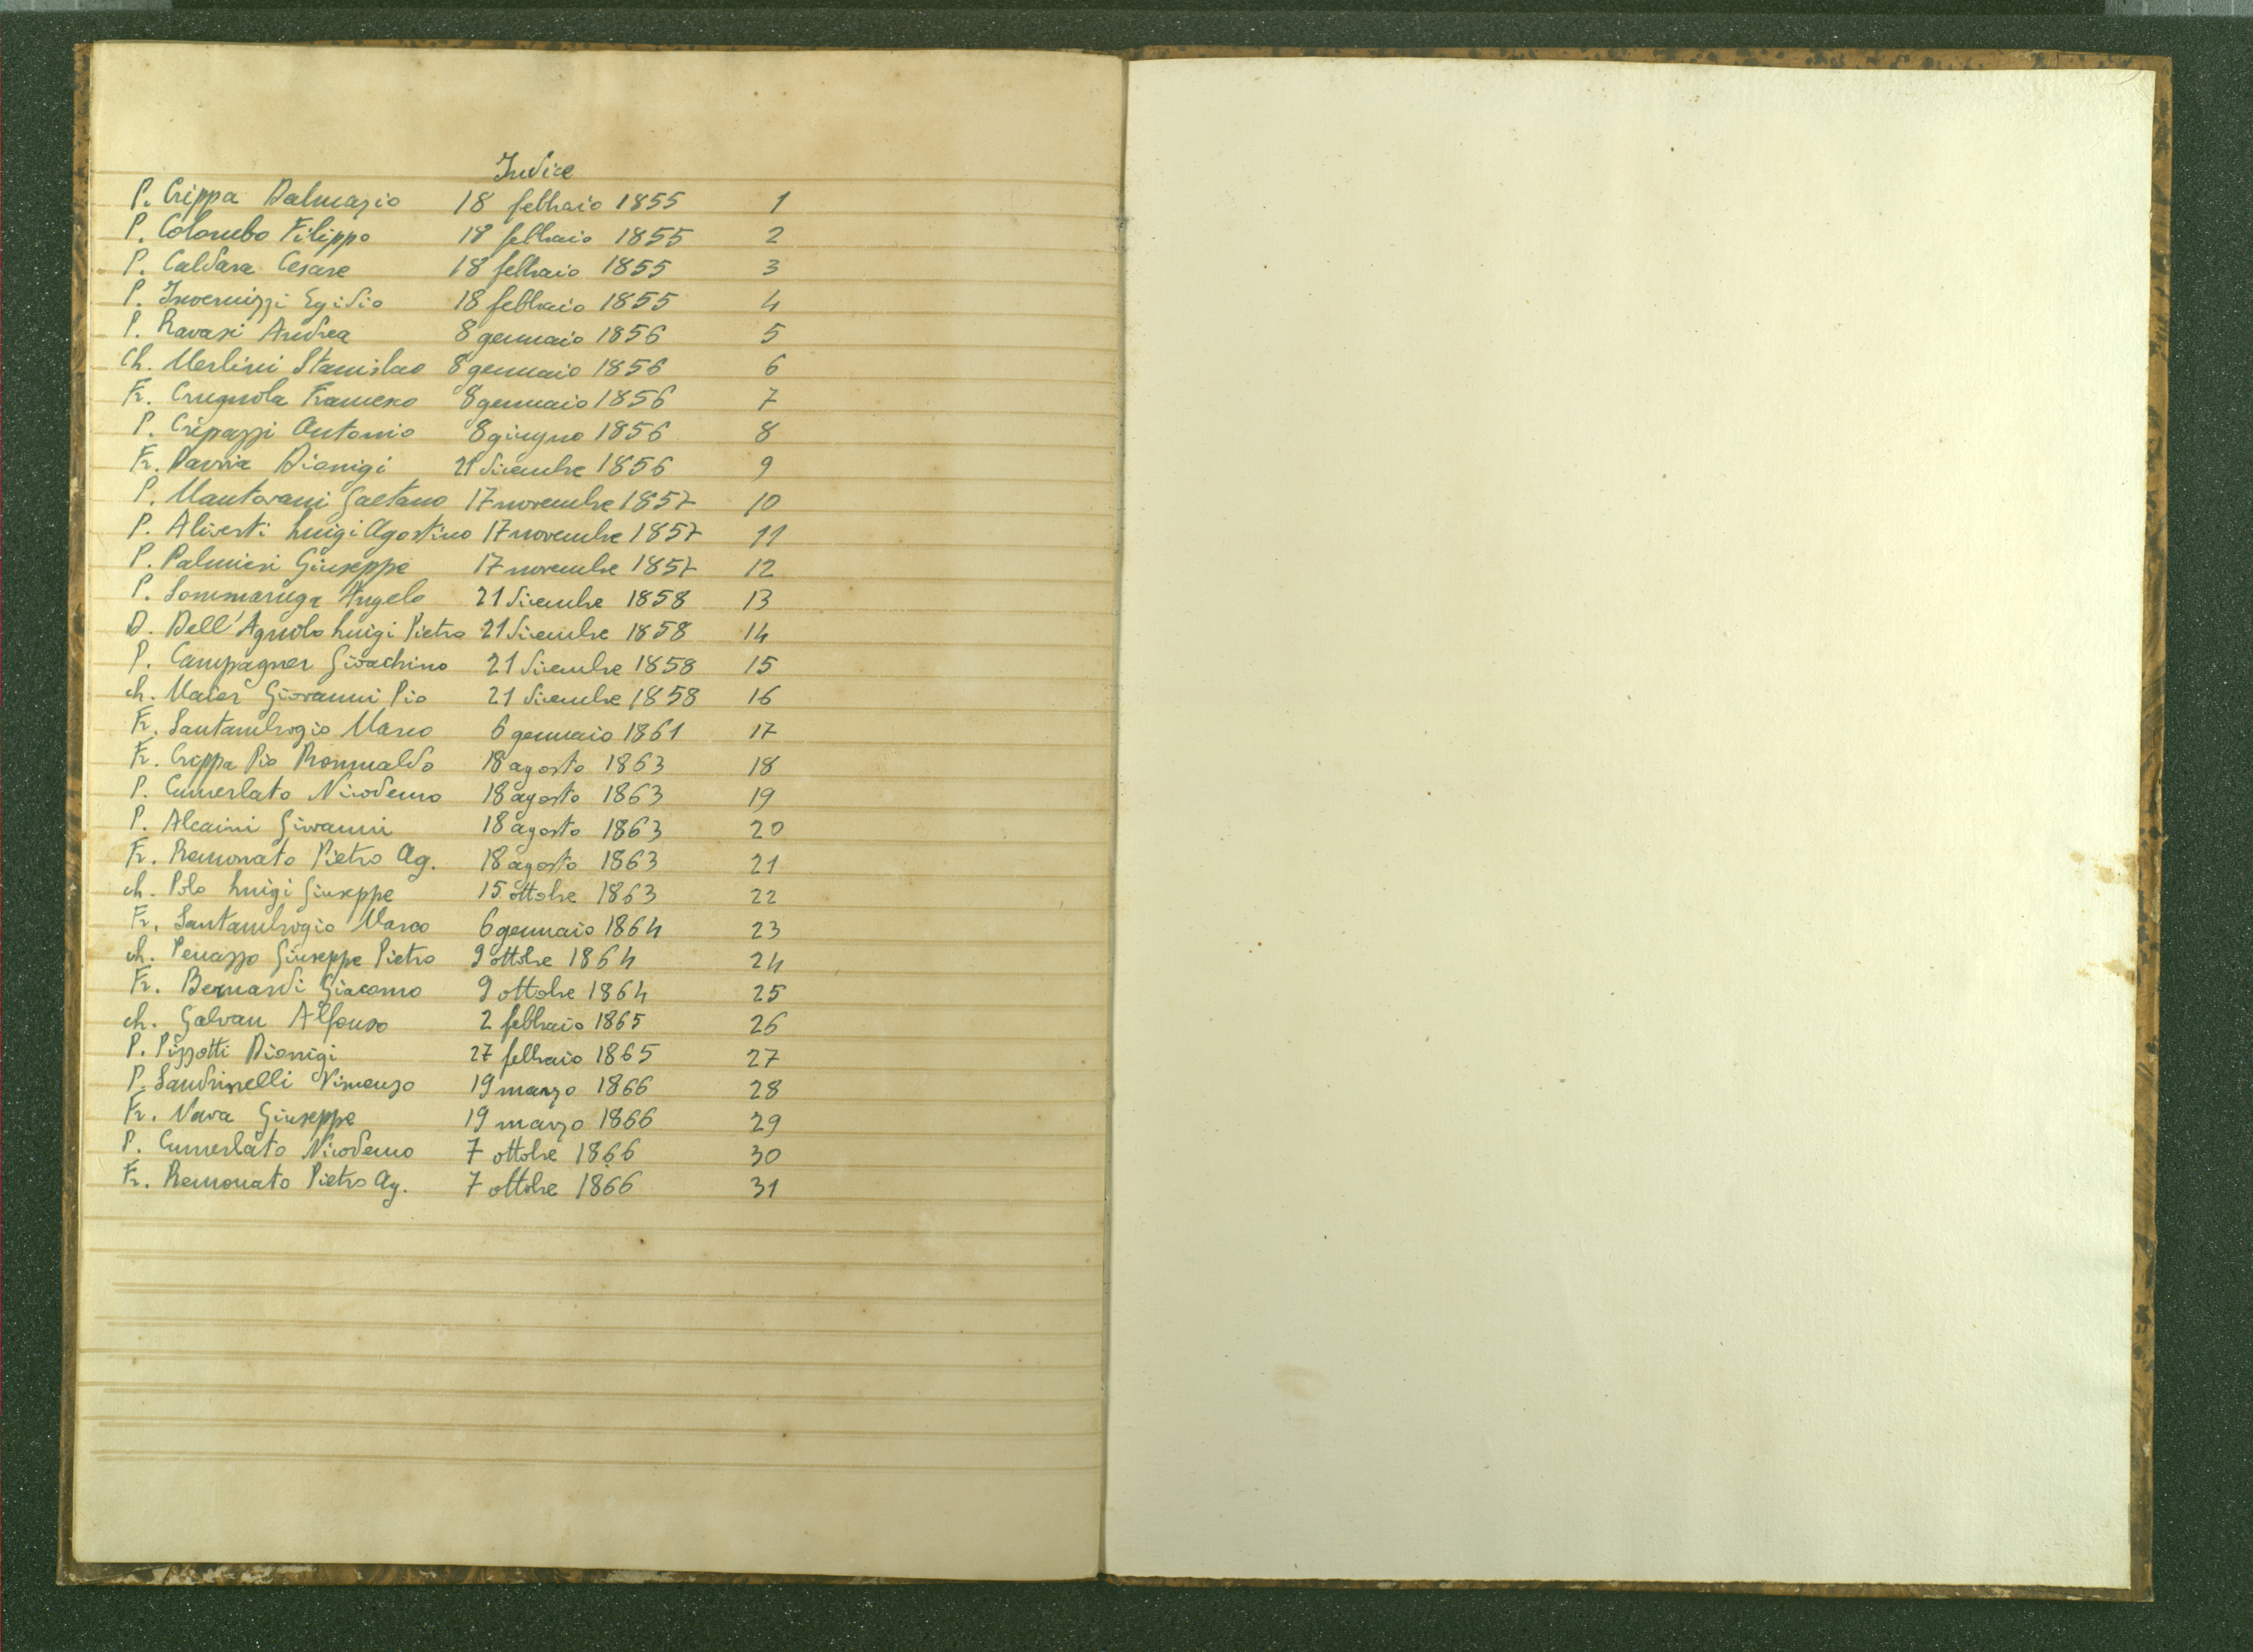 Indice
P. Crippa Dalmazio 18 febbraio 1855 1
P. Colombo Filippo 18 febbraio 1855 2
P. Caldara Cesare 18 febbraio 1855 3
P. Invernizzi Egidio 18 febbraio 1855 4
P. Ravasi Andrea 8 gennaio 1856 5
Ch. Merlini Stanislao 8 gennaio 1856 6
Fr. Crugnola Francesco 8 gennaio 1856 7
P. Crepazzi Antonio 8 giugno 1856 8
Fr. Pavria Dionigi 21 dicembre 1856 9
P. Mantovani Gaetano 17 novembre 1857 10
P. Aliverti Luigi Agostino 17 novembre 1857 11
P. Palmieri Giuseppe 17 novembre 1857 12
P. Sommaruga Angelo 21 dicembre 1858 13
D. Dell'Agnolo Luigi Pietro 21 dicembre 1858 14
P. Campagner Gioachino 21 dicembre 1858 15
ch. Maier Giovanni Pio 21 dicembre 1858 16
Fr. Santambrogio Marco 6 gennaio 1861 17
Fr. Crippa Pio Romualdo 18 agosto 1863 18
P. Cumerlato Nicodemo 18 agosto 1863 19
P. Alcaini Giovanni 18 agosto 1863 20
Fr. Remonato Pietro Ag. 18 agosto 1863 21
ch. Polo Luigi Giuseppe 15 ottobre 1863 22
Fr. Santambrogio Marco 6 gennaio 1864 23
ch. Penazzo Giuseppe Pietro 9 ottobre 1864 24
Fr. Bernardi Giacomo 9 ottobre 1864 25
ch. Galvan Alfonso 2 febbraio 1865 26
P. Pizzotti Dionigi 27 febbraio 1865 27
P. Sandrinelli Vincenzo 19 marzo 1866 28
Fr. Nava Giuseppe 19 marzo 1866 29
P. Cumerlato Nicodemo 7 ottobre 1866 30
Fr. Remonato Pietro Ag. 7 ottobre 1866 31